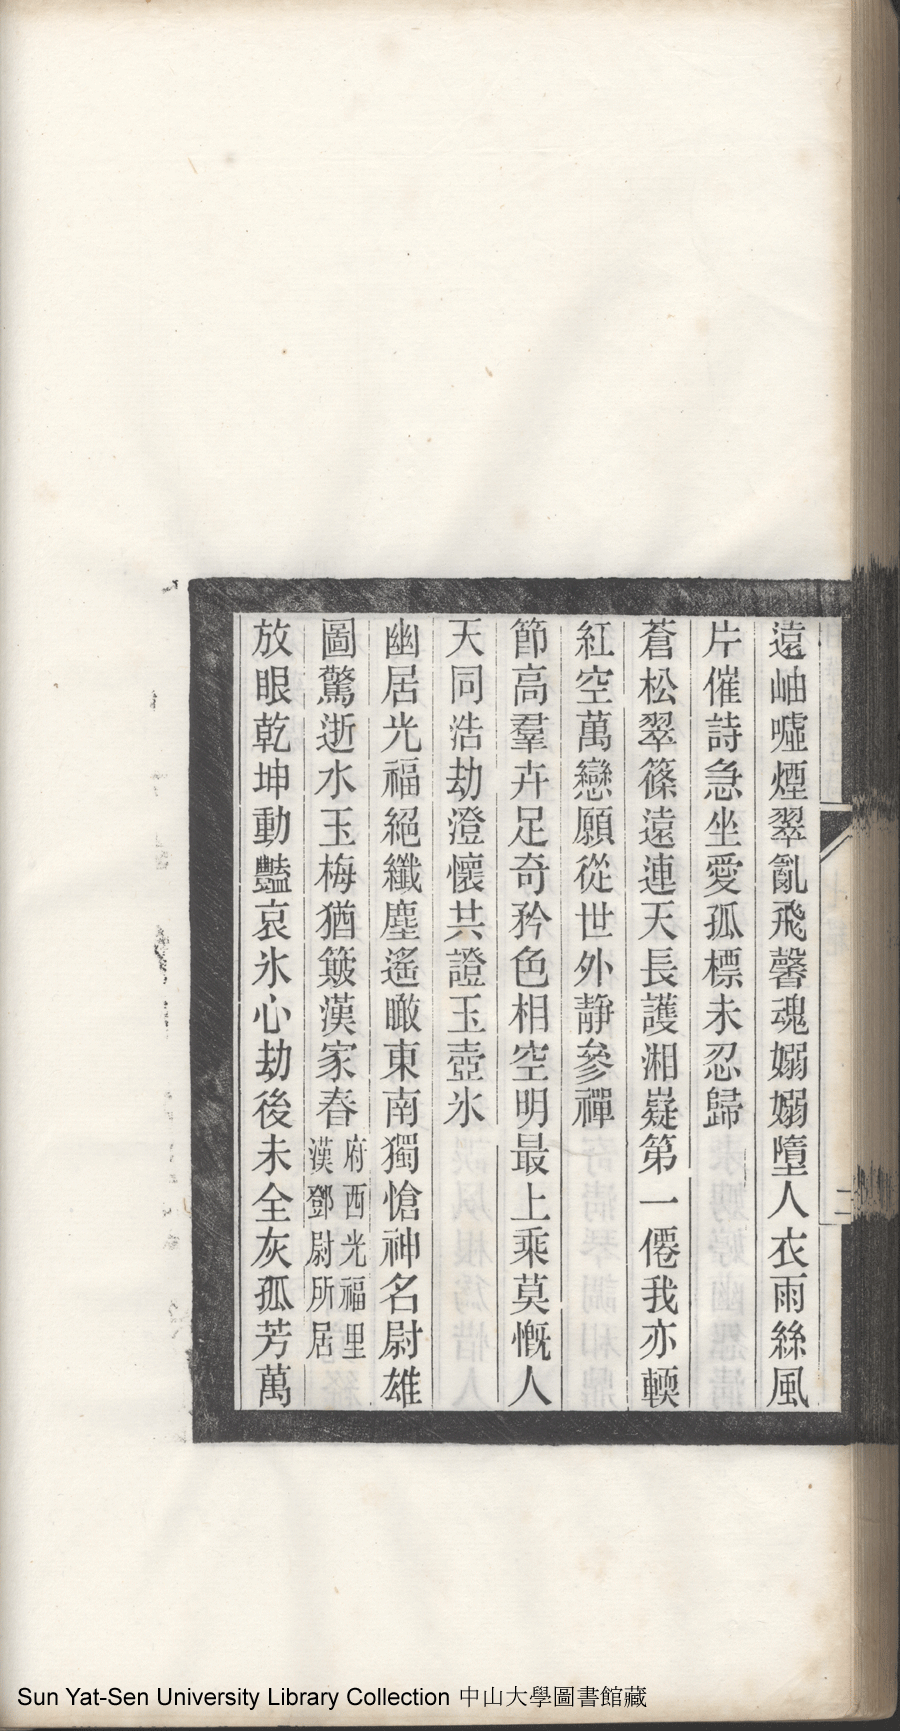 遠岫噓煙翠亂飛馨魂嫋嫋墮人衣雨絲風
片催詩急坐愛孤標未忍歸
蒼松翠篠遠連天長護湘嶷第一僊我亦輭
紅空萬戀願從世外靜參禪
節高羣卉足奇矜色相空明最上乘莫慨人
天同浩劫澄懷共證玉壺氷
幽居光福絕纖塵遙瞰東南獨愴神名尉雄
圖驚逝水玉梅猶簸漢家春府西光福里
漢鄧尉所居
放眼乾坤動豔哀氷心劫後未全灰孤芳萬
二
Sun Yat-Sen University Library Collection 中山大學圖書館藏